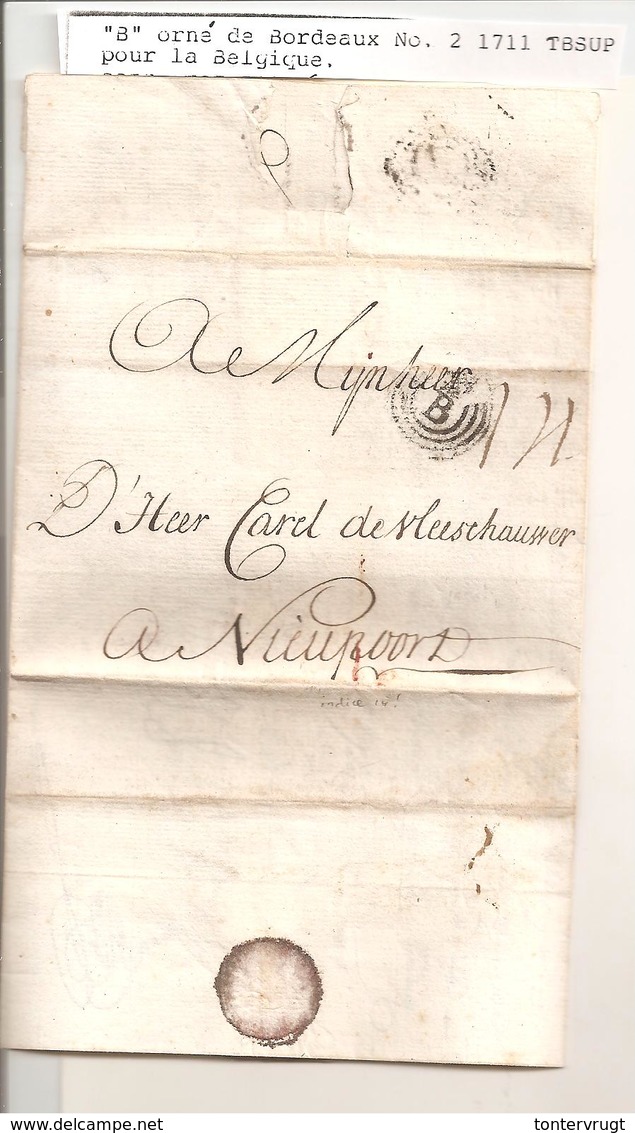 "B" orné de Bordeaux No. 2 1711 TBSUP
pour la Belgique.
A Mijnheer
B
D'Heer Carel de Vleeschauwer
A Nieupoort
indice 14!
tontervrugt